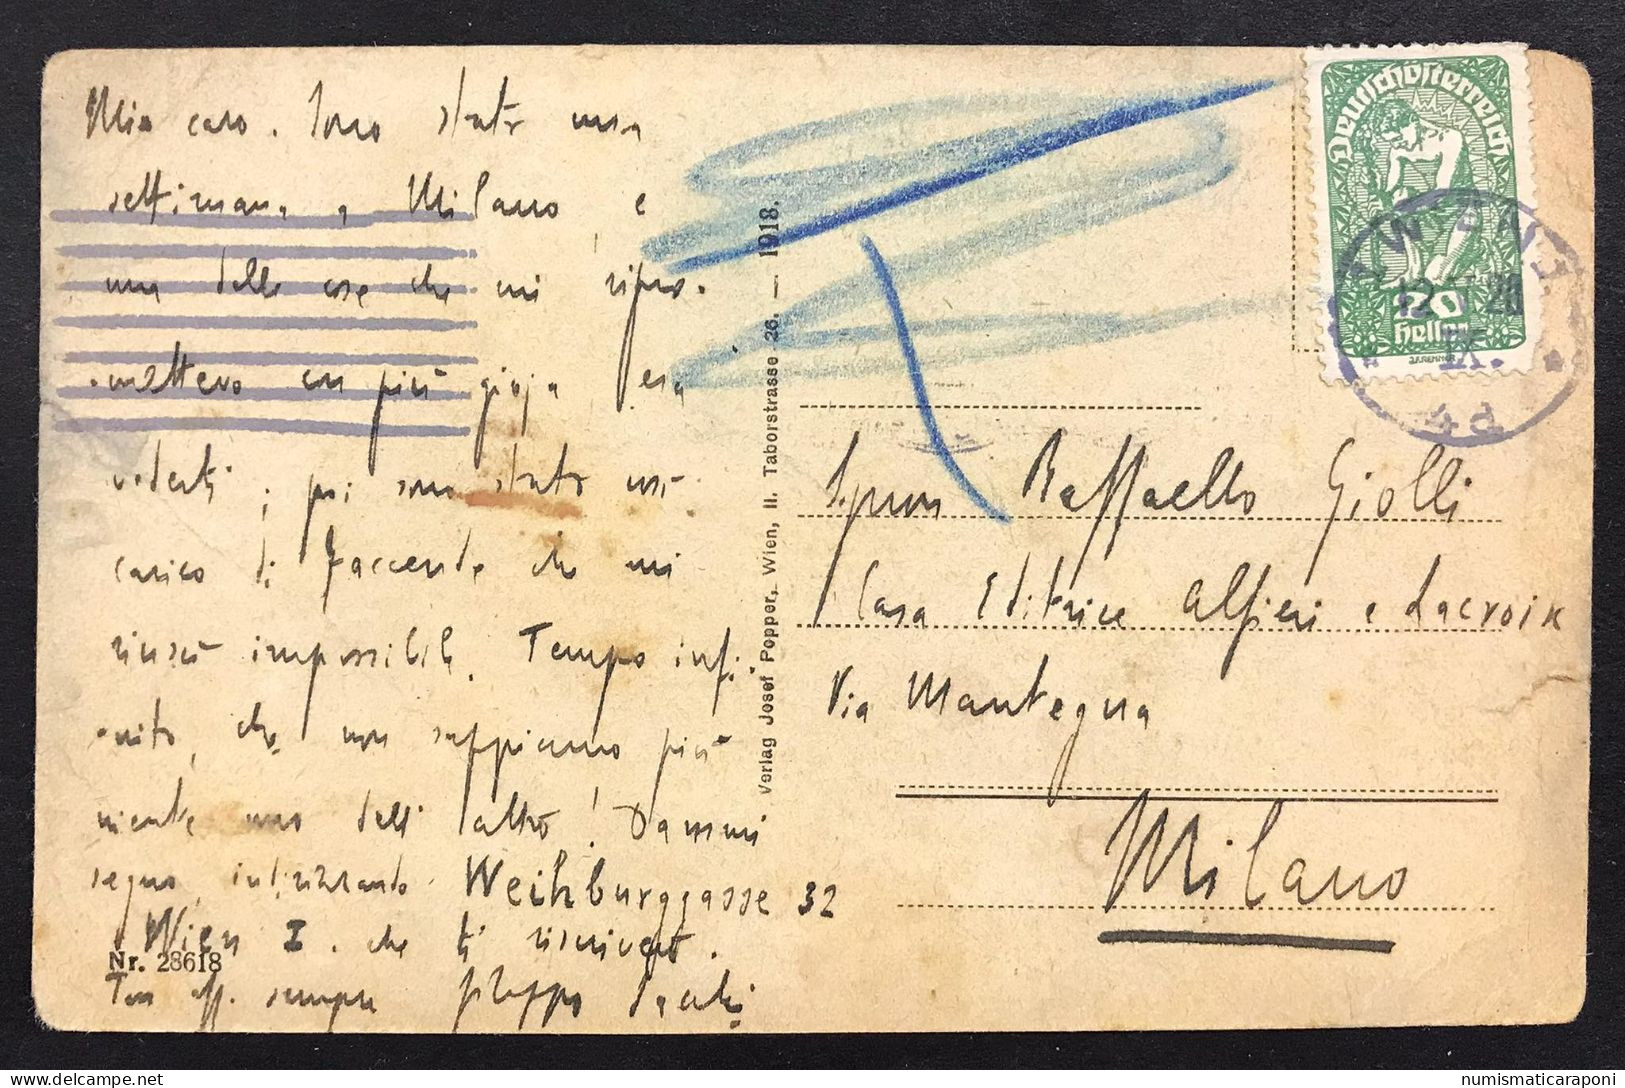 Mio caro. Sono stato una
settimana a Milano e
una delle cose che mi ripro-
mettevo con più gioja era
vederti; poi sono stato così
carico di faccende che mi
riuscì impossibile. Tempo infi-
nito, che non sappiamo più
niente uno dell'altro! Dammi
segno, indirizzando Weihburggasse 32
Wien I. che ti riscriverò.
Tuo aff. sempre Filippo Sacchi
Nr. 28618
Verlag Josef Popper, Wien, II. Taborstrasse 26. — 1918.
T
Deutschösterreich
20
Heller
J.F.RENNER
WIEN
12
20
IX.
Signor Raffaello Giolli
Casa Editrice Alfieri e Lacroix
Via Mantegna
Milano
delcampe.net
numismaticaraponi